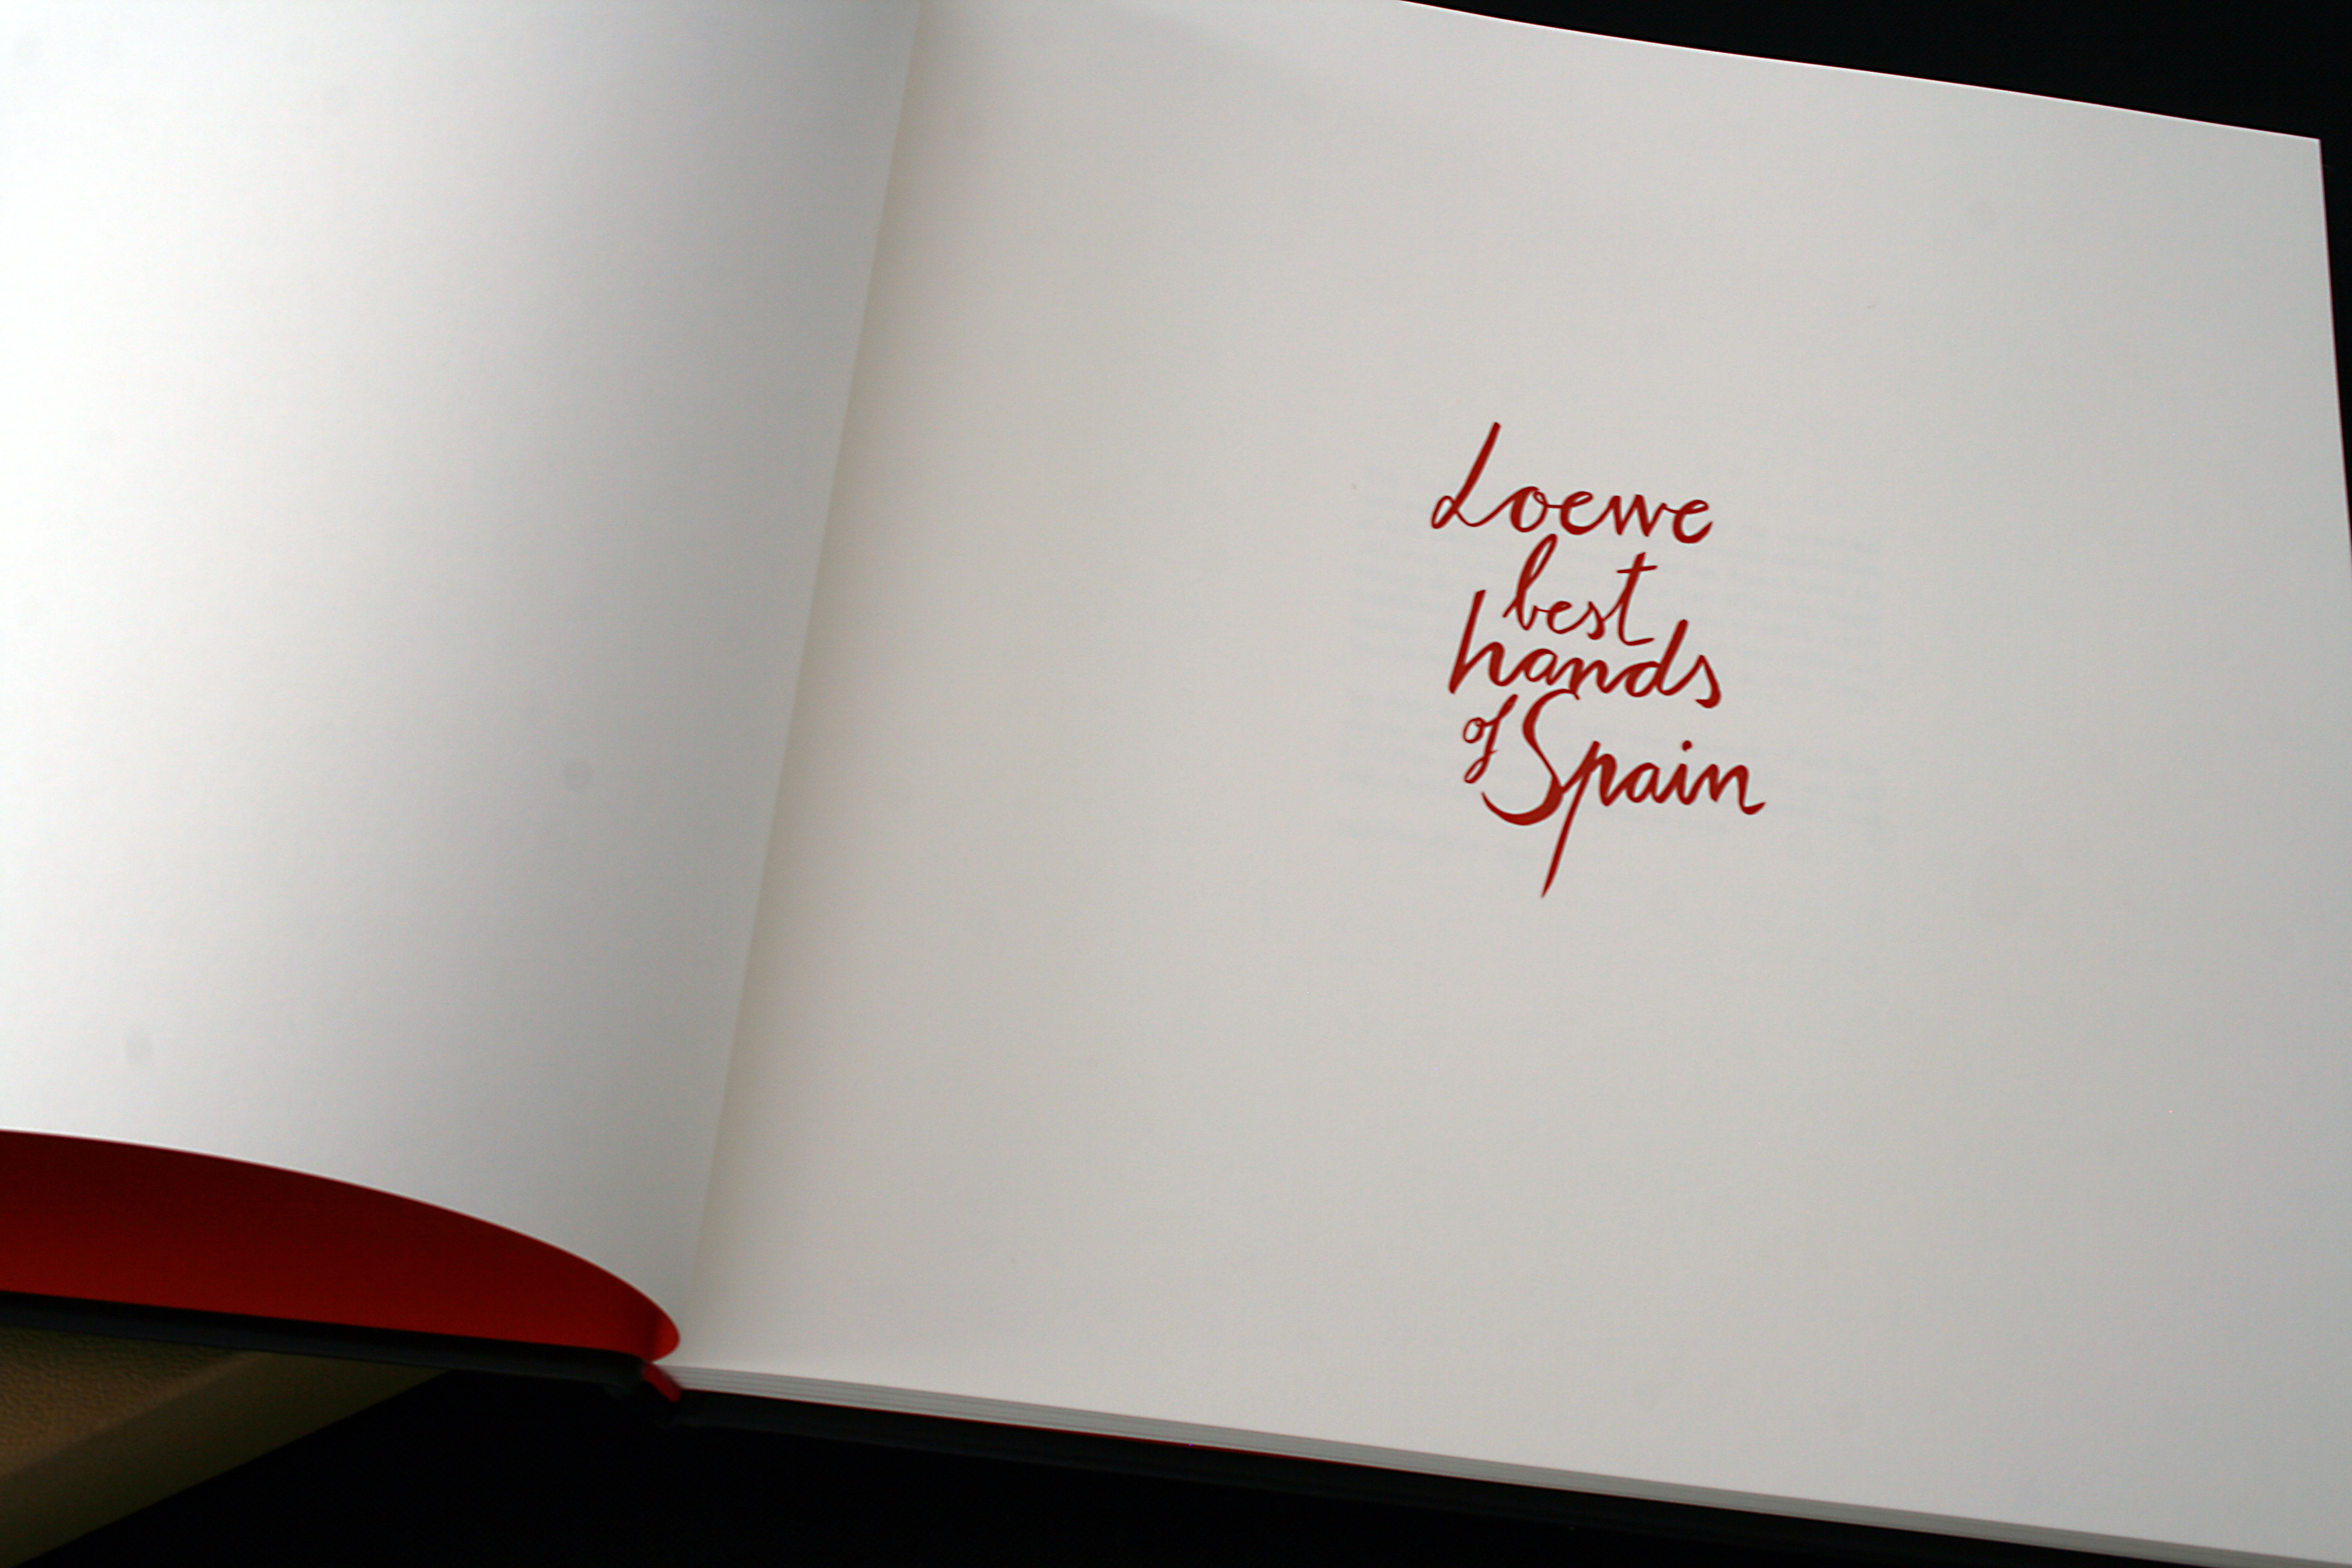 Loewe
best
hands
of Spain